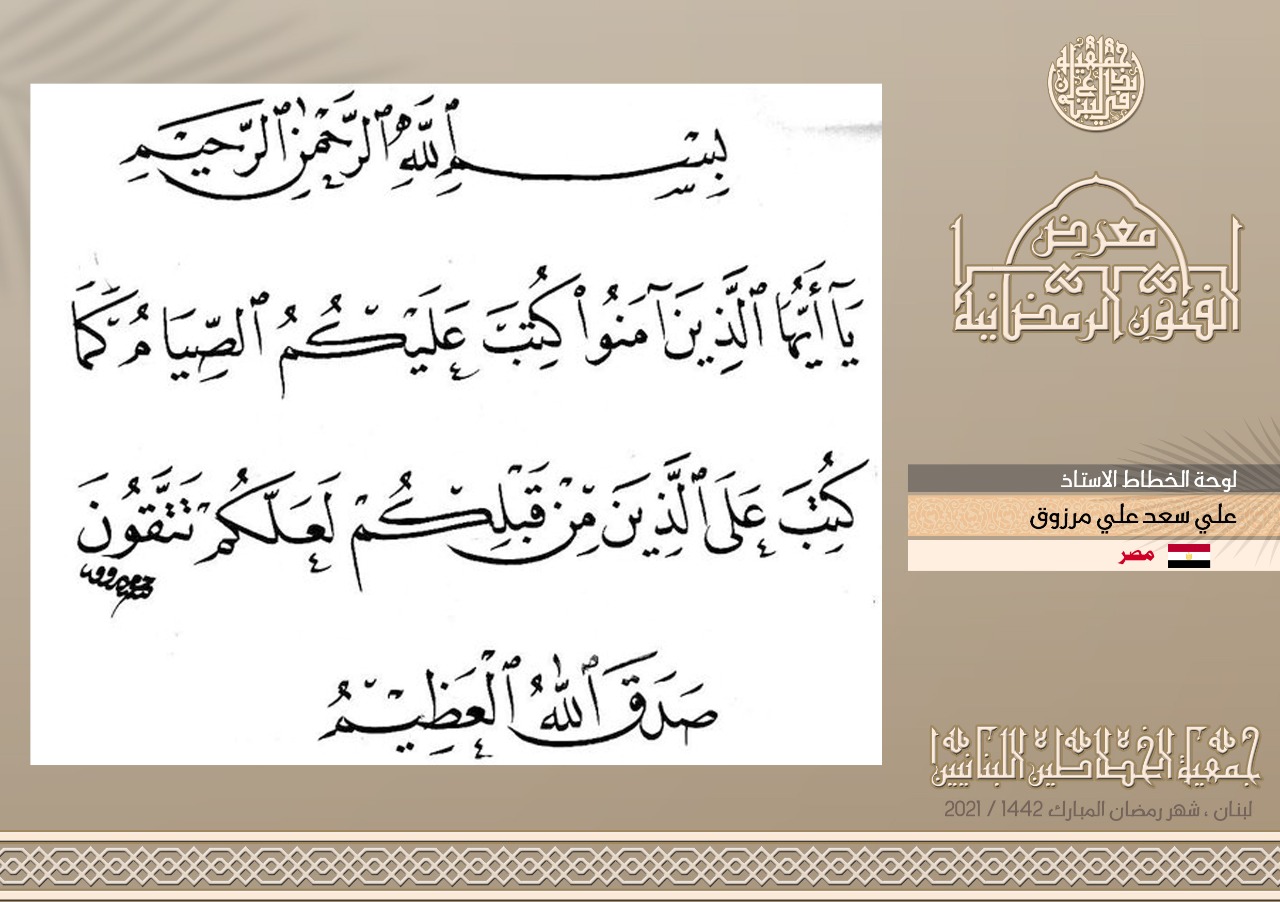 بِسْمِ ٱللَّهِ ٱلرَّحْمَٰنِ ٱلرَّحِيمِ
يَا أَيُّهَا ٱلَّذِينَ آمَنُوا۟ كُتِبَ عَلَيْكُمُ ٱلصِّيَامُ كَمَا
كُتِبَ عَلَى ٱلَّذِينَ مِنْ قَبْلِكُمْ لَعَلَّكُمْ تَتَّقُونَ
صَدَقَ ٱللَّهُ ٱلْعَظِيمُ
معرض
الفنون الرمضانية
لوحة الخطاط الاستاذ
علي سعد علي مرزوق
مصر
جمعية الخطاطين اللبنانيين
لبنان ، شهر رمضان المبارك 1442 / 2021